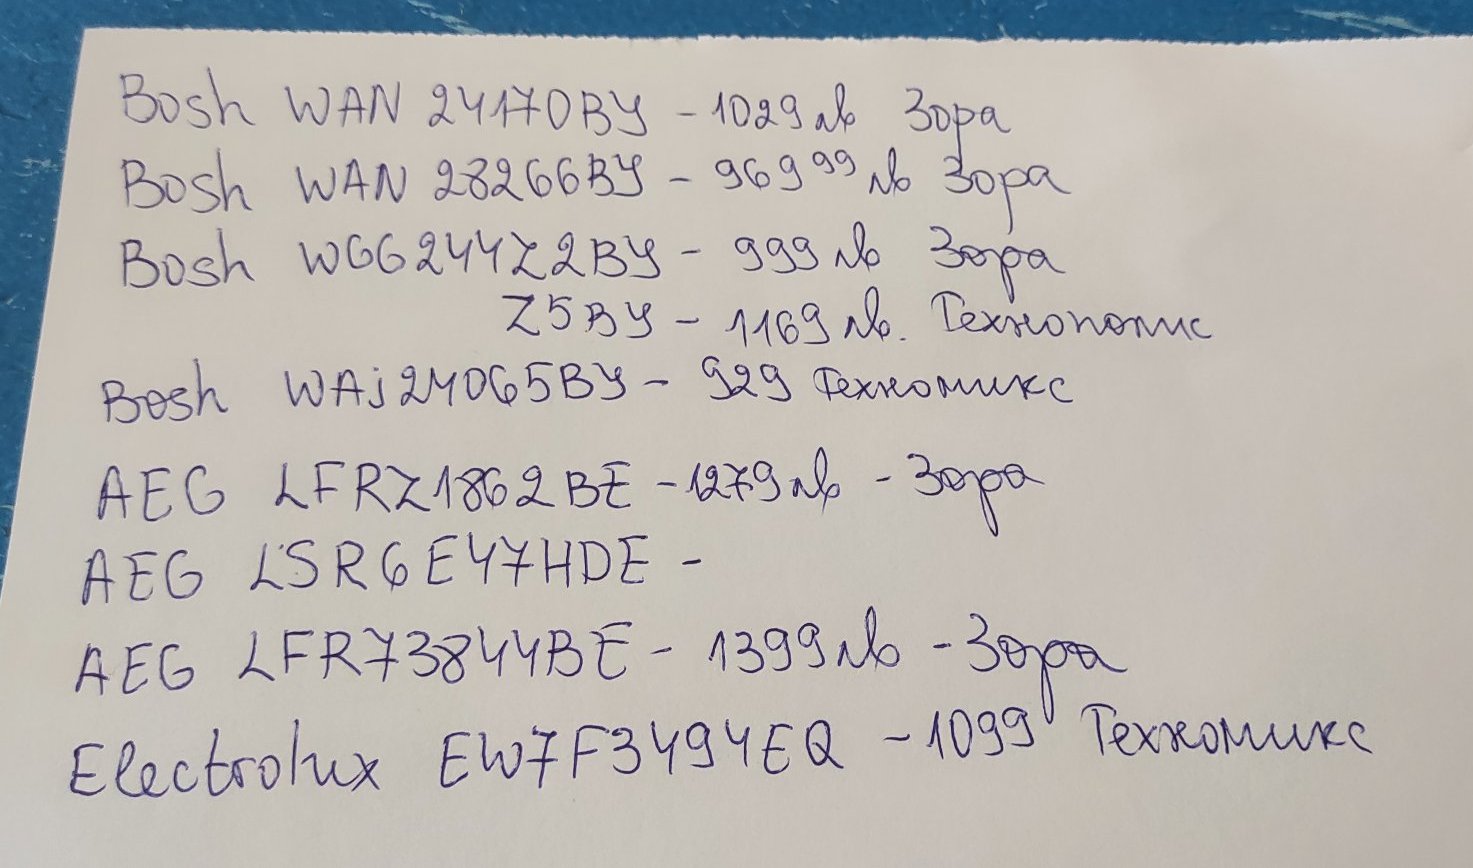 Bosh WAN 24170BY - 1029лв Зора
Bosh WAN 28266BY - 969⁹⁹лв Зора
Bosh WGG244Z2BY - 999лв Зора
Z5BY - 1169лв. Технополис
Bosh WAj24065BY - 929 Техномикс
AEG LFRZ1862BE - 1279лв - Зора
AEG LSR6E47HDE -
AEG LFR73844BE - 1399лв - Зора
Electrolux EW7F3494EQ - 1099 Техномикс